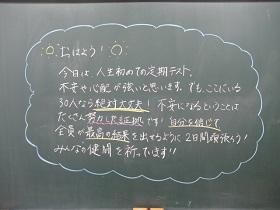 おはよう!
今日は、人生初めての定期テスト。
不安や心配が強いと思います。でも、ここにいる
30人なら絶対大丈夫! 不安になるということは
たくさん努力した証拠です!自分を信じて
全員が最高の結果を出せるように2日間頑張ろう!
みんなの健闘を祈っています!!